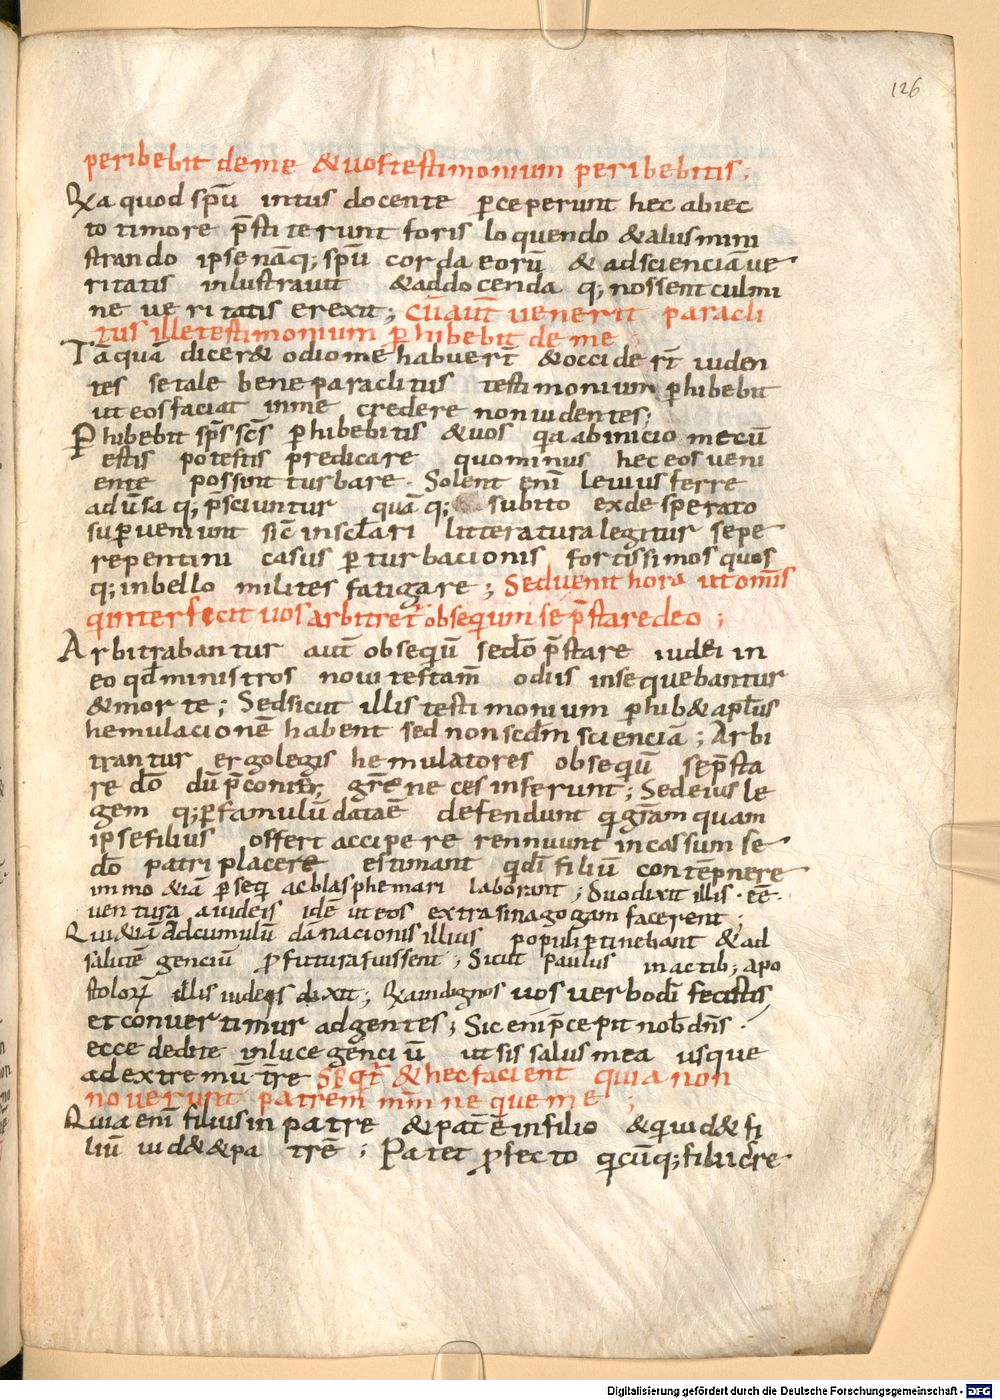 126
peribebit de me & uos testimonium peribebitis.
Exa quod sp̄u intus docente ꝑceperunt hec abiec
to timore p̄stiterunt foris loquendo & aliis mini
strando ipse nāq; sp̄u corda eorū & ad scienciā ue
ritatis inlustrauit & ad docenda q; nossent culmi
ne ueritatis erexit; Cū aut̄ uenerit paracli
tus ille testimonium ꝑhibebit de me;
Tāquā dicer& odio me habuer̄t & occider̄t uiden
tes se tale bene paraclitus testimonium ꝑhibebit
ut eos faciat in me credere non uidentes;
Ꝑhibebit sp̄s sc̄s ꝑhibebitis & uos q̄a ab inicio mecū
estis potestis predicare quo minus hec eos ueni
ente possint turbare. Solent eni̅ leuius ferre
aduersa q; p̄sciuntur quā q; subito ex desperato
suꝑueniunt sic̄ in scl̄ari litteratura legitur sepe
repentini casus ꝑturbacionis fortissimos quos
q; in bello milites fatigare; Sed uenit hora ut om̄s
qui interfecit uos arbitret̄ obsequium se p̄stare deo;
Arbitrabantur aut̄ obsequiū se dō p̄stare iudei in
eo qd̄ ministros noui testam̄ odiis insequebantur
& morte; Sed sicut illis testimonium ꝑhib& apl̄us
hemulacionē habent sed non scd̄m scienciā; Arbi
trantur ergo legis hemulatores obsequiū se p̄sta
re dō dū p̄conib; gr̄e neces inferunt; Sed eius le
gem q; ꝑ famulū data ē defendunt q̄ gr̄am quam
ipse filius offert accipere rennuunt incassum se
dō patri placere estimant qd̄i filiū contēpnere
immo &iā ꝑseq̄ ac blasphemari laborant; Duo dixit illis. ee̅.
uentura a iudeis idē ut eos extra sinagogam facerent;
Qui &iā ad cumulū dānacionis illius populi ꝑtinebant & ad
salutē genciū ꝓfutura fuissent; Sicut paulus in actib; apo
stolor̄ illis iudeis dixit; Exa indignos uos uerbo di̅ fecistis
et conuertimur ad gentes; Sic eni̅ p̄cepit nob̄ dn̄s.
ecce dedi te in luce genciū ut sis salus mea usque
ad extremū t̄re Seq̄t̄ & hec facient quia non
nouerunt patrem m̄m neque me;
Quia eni̅ filius in patre & pat̄ ē in filio & qui uid& fi
liū uid& & patrē; Patet ꝓfecto q̄cūq; filii cre
Digitalisierung gefördert durch die Deutsche Forschungsgemeinschaft - DFG